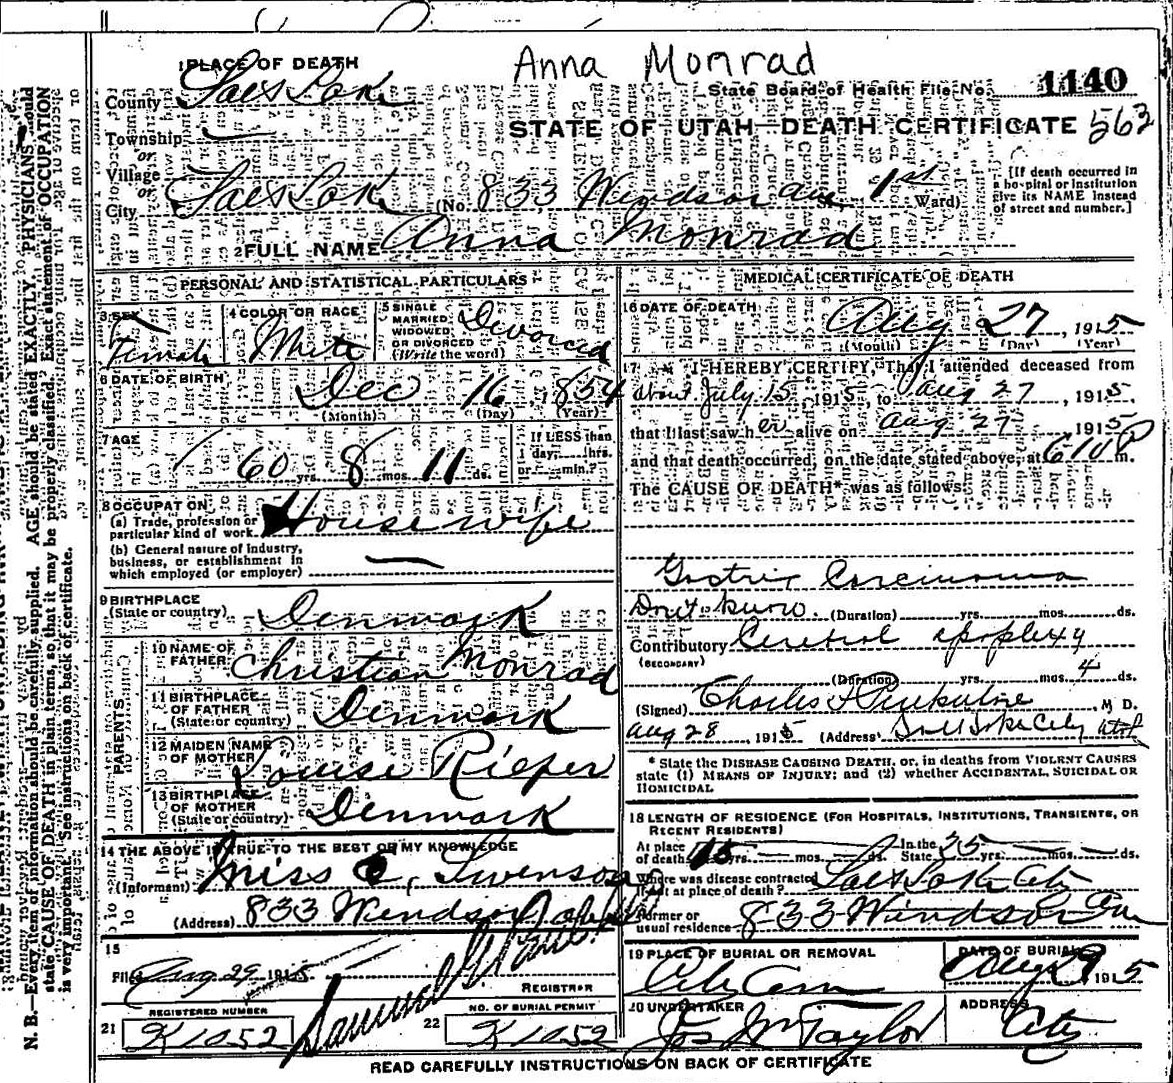 Anna Monrad
1 PLACE OF DEATH
State Board of Health File No. 1140
County Salt Lake
STATE OF UTAH—DEATH CERTIFICATE 562
Township
or
Village
or
City Salt Lake (No. 833 Windsor ave, 1st Ward)
[If death occurred in
a hospital or institution
give its NAME instead
of street and number.]
2 FULL NAME Anna Monrad
PERSONAL AND STATISTICAL PARTICULARS
3 SEX
Female
4 COLOR OR RACE
White
5 SINGLE
MARRIED
WIDOWED
OR DIVORCED
(Write the word)
Divorced
6 DATE OF BIRTH
Dec 16, 1854
(Month) (Day) (Year)
7 AGE
60 yrs. 8 mos. 11 ds.
If LESS than
day, hrs.
or min.?
8 OCCUPATION
(a) Trade, profession or
particular kind of work House wife
(b) General nature of industry,
business, or establishment in
which employed (or employer)
9 BIRTHPLACE
(State or country) Denmark
PARENTS
10 NAME OF
FATHER Christian Monrad
11 BIRTHPLACE
OF FATHER
(State or country) Denmark
12 MAIDEN NAME
OF MOTHER Louise Rieper
13 BIRTHPLACE
OF MOTHER
(State or country) Denmark
14 THE ABOVE IS TRUE TO THE BEST OF MY KNOWLEDGE
(Informant) Miss C. Swenson
(Address) 833 Windsor
15
Filed Aug 29 1915
REGISTRAR
REGISTERED NUMBER
21 K1052
NO. OF BURIAL PERMIT
22 K1052
MEDICAL CERTIFICATE OF DEATH
16 DATE OF DEATH
Aug 27, 1915
(Month) (Day) (Year)
17 I HEREBY CERTIFY, That I attended deceased from
about July 15 1915, to Aug 27, 1915.
that I last saw her alive on Aug 27 1915
and that death occurred, on the date stated above, at 610 P m.
The CAUSE OF DEATH* was as follows:
Gastric Carcinoma
Don't know. (Duration) yrs. mos. ds.
Contributory Cerebral apoplexy
(SECONDARY)
(Duration) yrs. mos. 4 ds.
(Signed) Charles, M D.
Aug 28, 1915 (Address) Salt Lake City Utah
* State the DISEASE CAUSING DEATH, or, in deaths from VIOLENT CAUSES
state (1) MEANS OF INJURY; and (2) whether ACCIDENTAL, SUICIDAL OR
HOMICIDAL
18 LENGTH OF RESIDENCE (FOR HOSPITALS, INSTITUTIONS, TRANSIENTS, OR
RECENT RESIDENTS)
At place
of death 15 yrs. mos. ds. In the
State 35 yrs. mos. ds.
Where was disease contracted
if not at place of death? Salt Lake City
Former or
usual residence 833 Windsor Ave
19 PLACE OF BURIAL OR REMOVAL
City Cem
DATE OF BURIAL
Aug 29 1915
20 UNDERTAKER
Jos Wm Taylor
ADDRESS
City
READ CAREFULLY INSTRUCTIONS ON BACK OF CERTIFICATE
N. B.—Every item of information should be carefully supplied. AGE should be stated EXACTLY. PHYSICIANS should
state CAUSE OF DEATH in plain terms, so that it may be properly classified. Exact statement of OCCUPATION
is very important. See instructions on back of certificate.